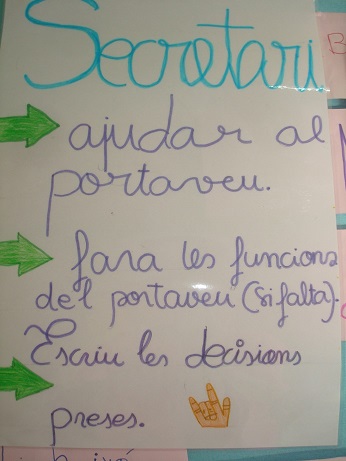 Secretari
ajudar al
portaveu.
fara les funcions
del portaveu (si falta).
Escriu les decisions
preses.